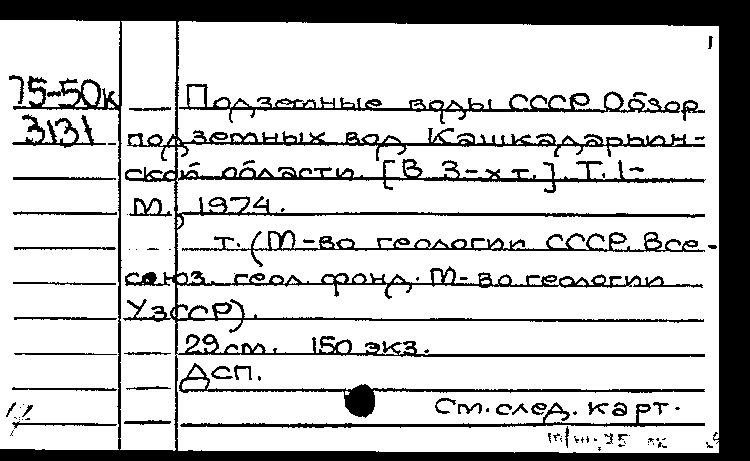 1
75-50к Подземные воды СССР Обзор
3131 подземных вод Кашкадарьин-
ской области. [В 3-х т.]. Т. 1-
М., 1974.
т. (М-во геологии СССР. Все-
союз. геол. фонд. М-во геологии
УзССР).
29 см. 150 экз.
Дсп.
См. след. карт.